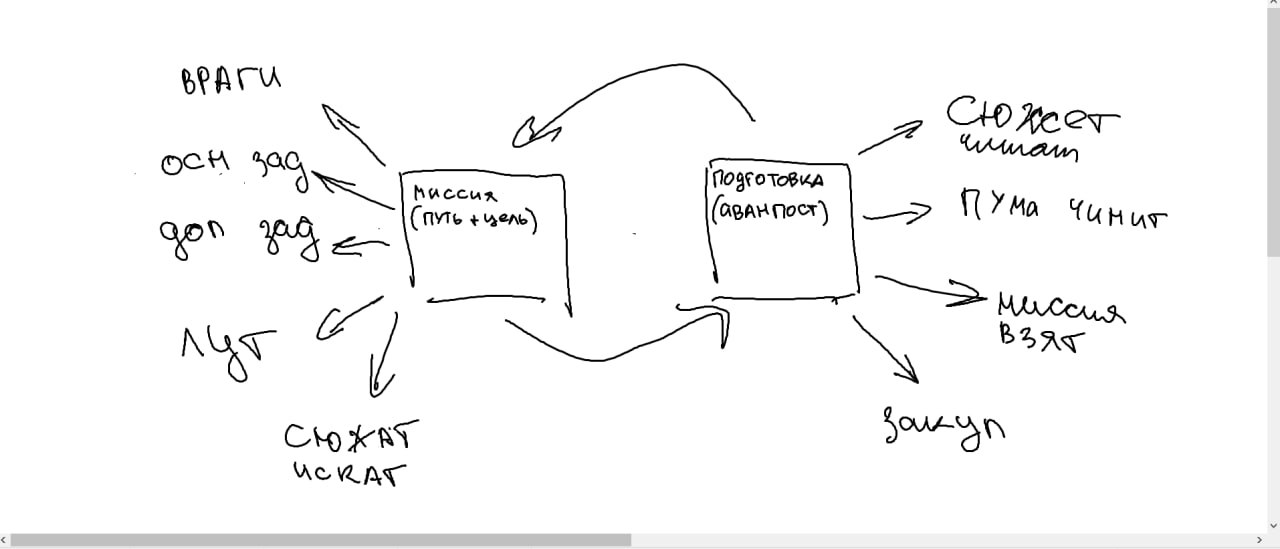 ВРАГИ
ОСН ЗАД
ДОП ЗАД
ЛУТ
СЮЖАТ
ИСКАТ
МИССИЯ
(ПУТЬ + ЦЕЛЬ)
ПОДГОТОВКА
(АВАНПОСТ)
СЮЖЕТ
читат
ПУМА ЧИНИТ
МИССИЯ
ВЗЯТ
ЗАКУП